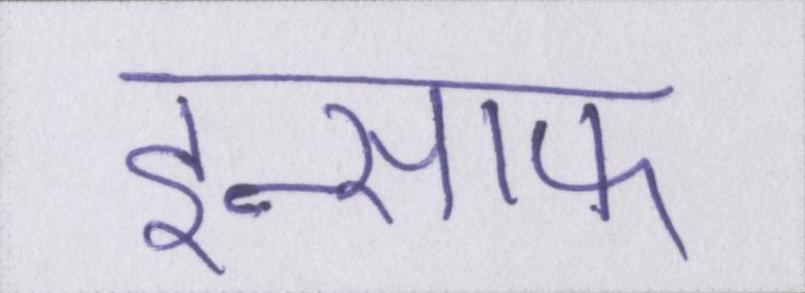 इन्साफ